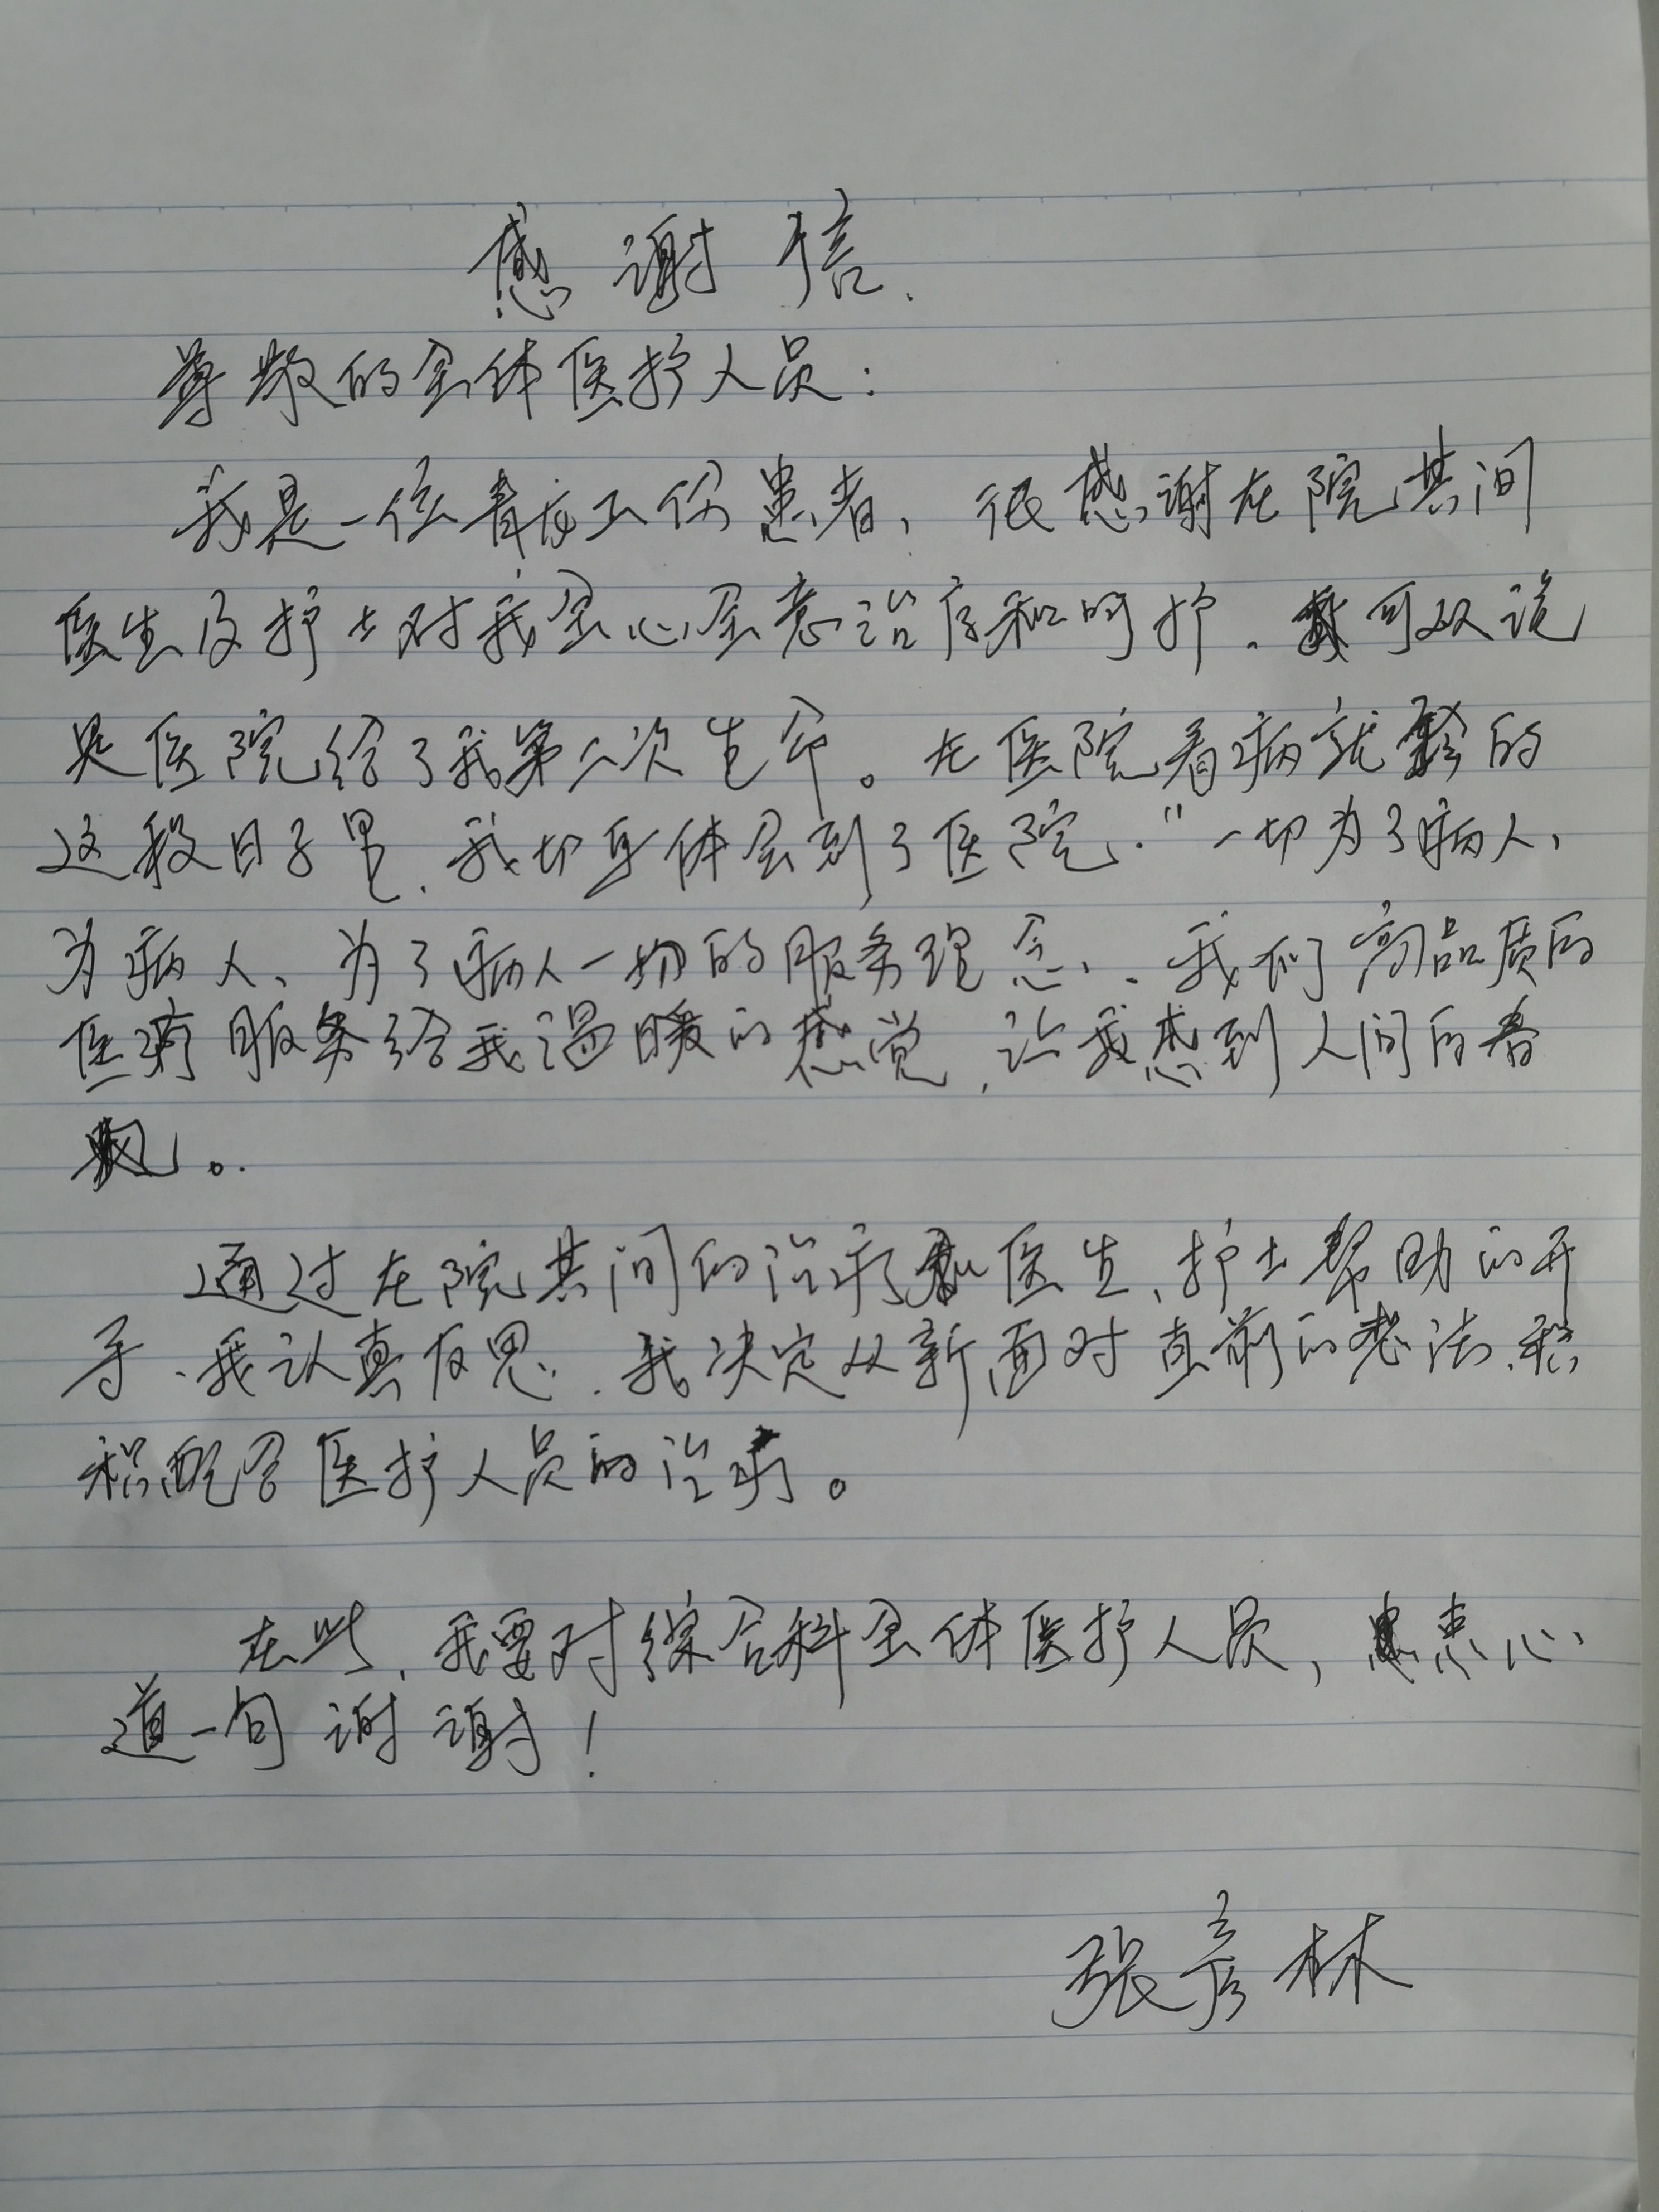 感谢信.
尊敬的全体医护人员:
我是一位青龙工伤患者、很感谢在院其间
医生及护士对我全心全意治疗和呵护.可以说
是医院给了我第二次生命。在医院看病就的
这段日子里.我切身体会到了医院.“一切为了病人、
为病人、为了病人一切的服务理念、.我们高品质的
医疗服务给我温暖的感觉,让我感到人间的春
风。.
通过在院其间的治疗和医生、护士帮助的开
导、我认真反思.我决定从新面对直前的想法.积
积配合医护人员的治疗。
在此,我要对综合科全体医护人员,衷心
道一句谢谢!
张彦林